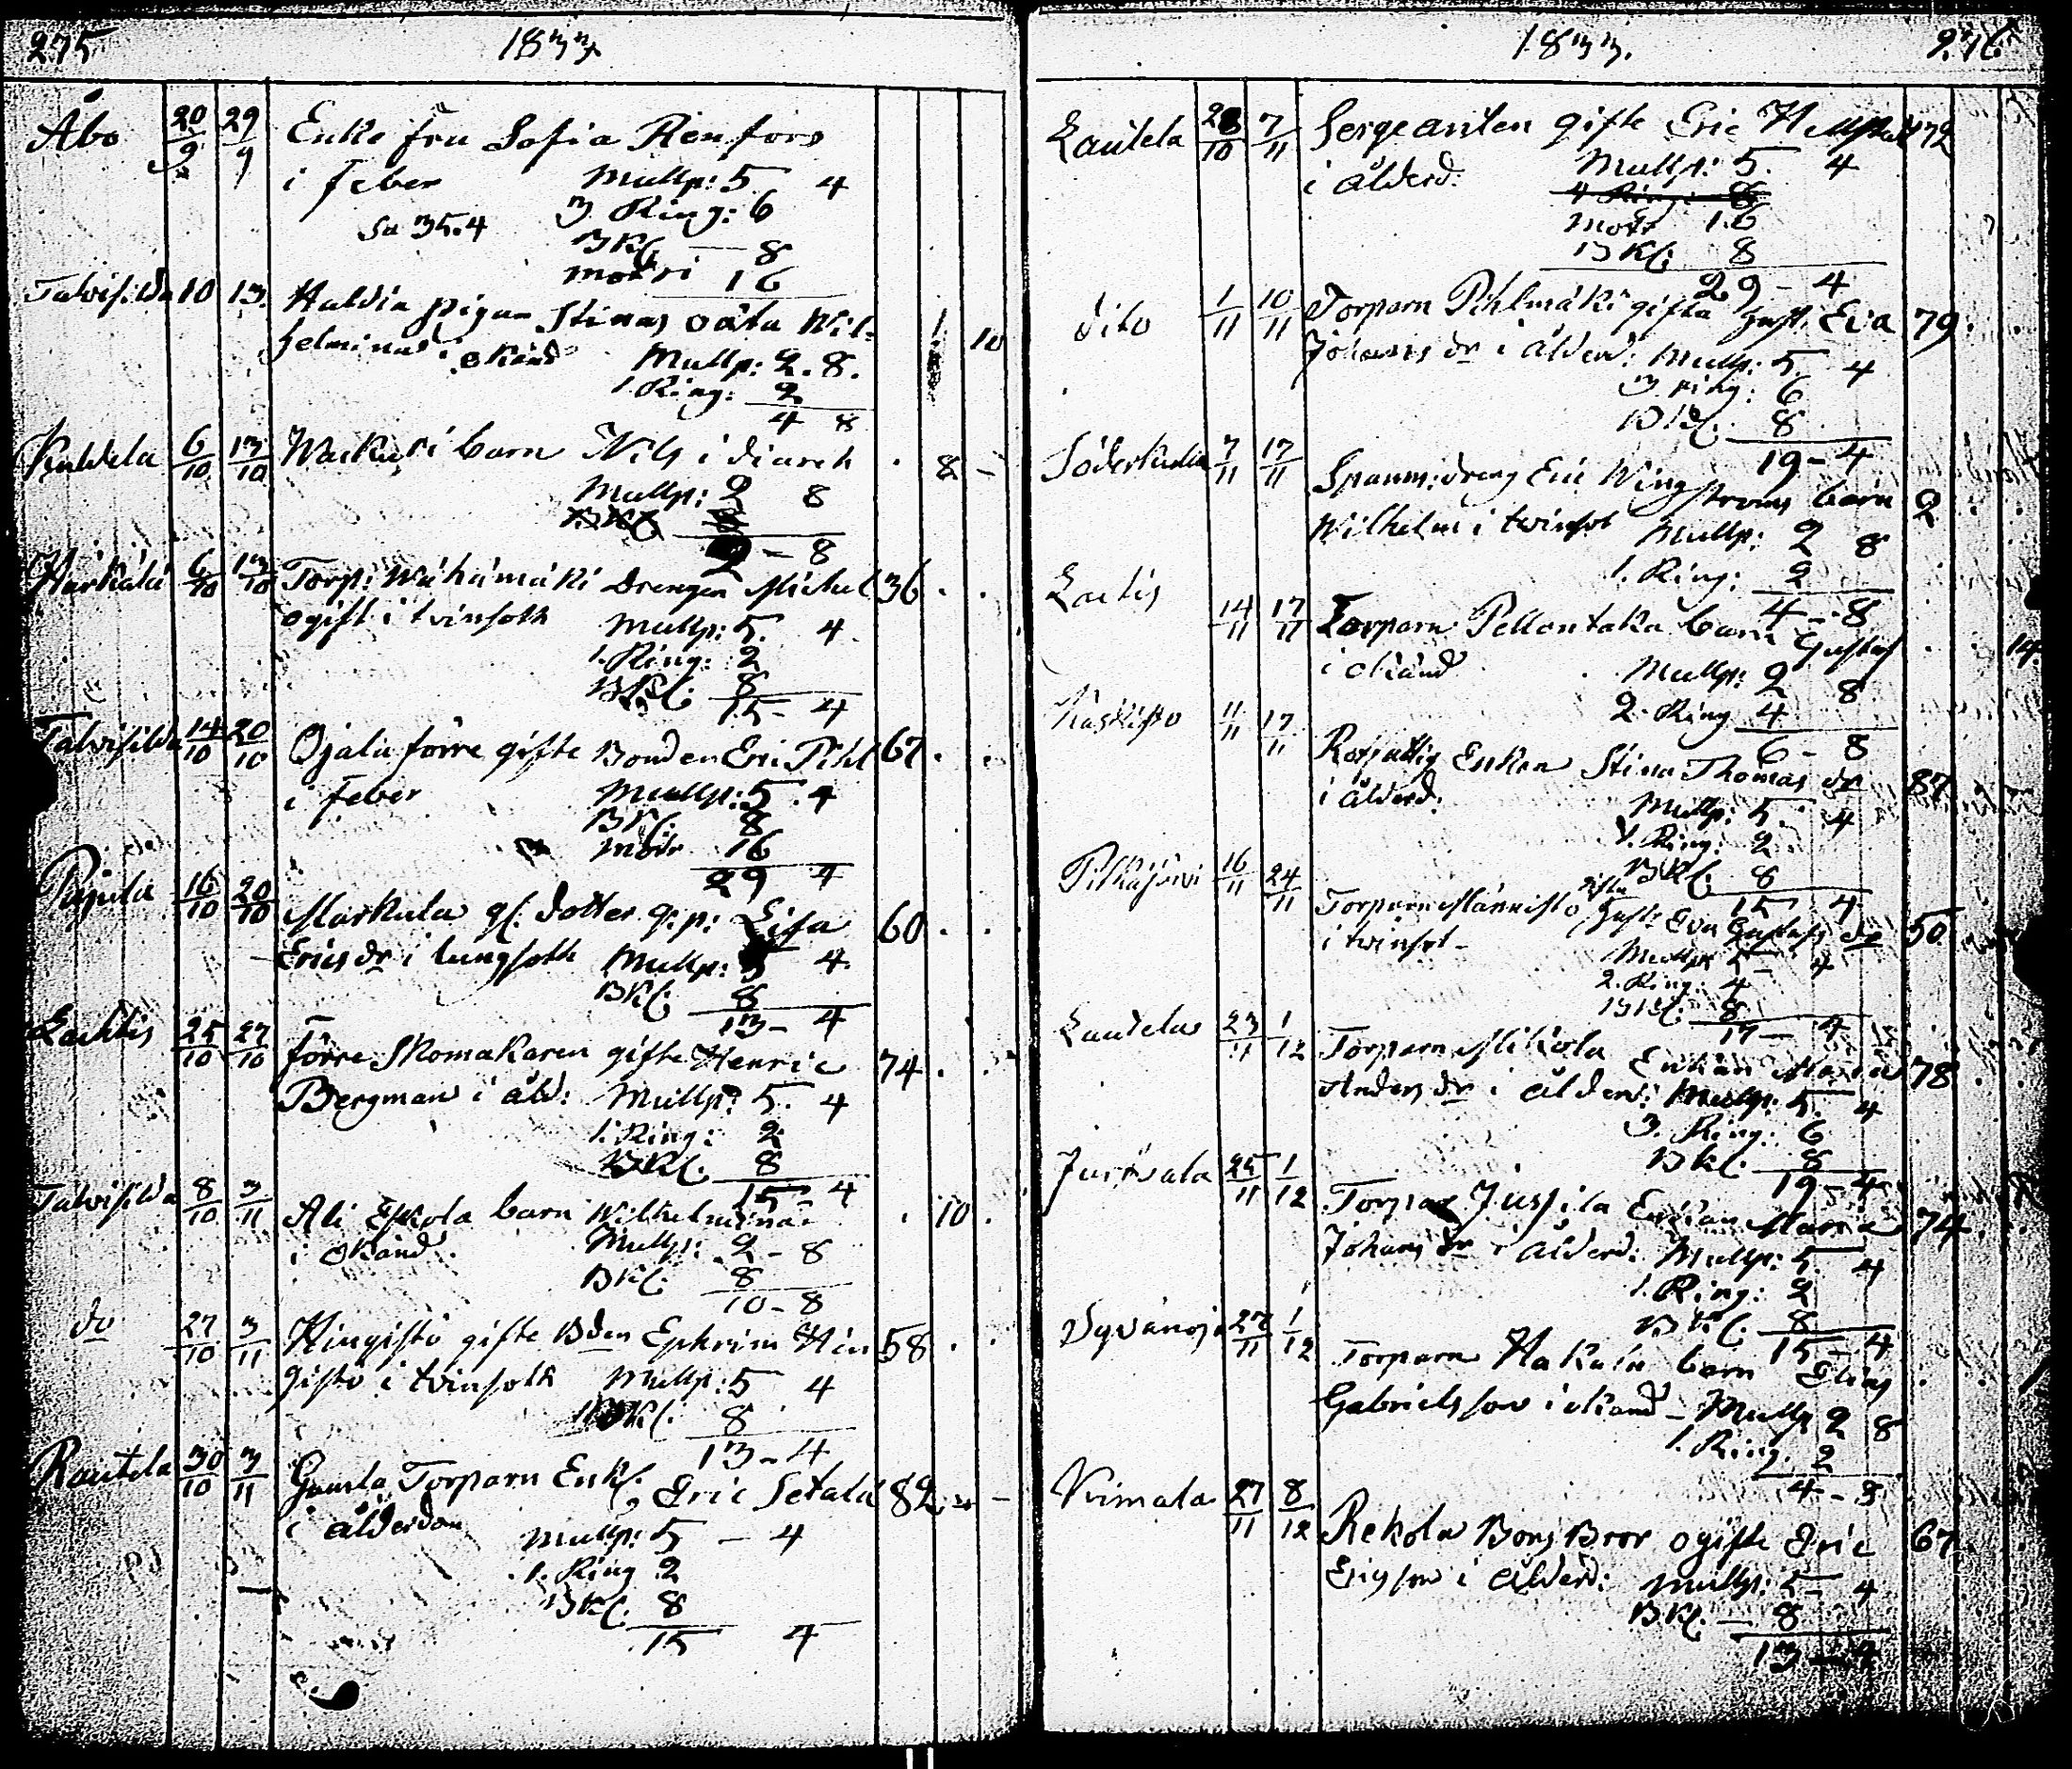 275
1833
Åbo 20/9 29/9 Enke fru Sofia Renfors
i feber Mullp: 5 4
Sa 35.4 3 Ring: 6
BKl. — 8
16
Talvisilda 10 13 Huldia pigan Stinas oäkta Wil-
helmina i okänd Mullp: 2. 8. 1 10
1. Ring: 2
4 8
6/10 13/10 barn Nils i diareh 8 -
Mullp: 2 8
2 - 8
Härkälä 6/10 13/10 Torp: Mähämäki Drengen Michel 36
ogift i tvinsoth Mullp: 5. 4
1. Ring: 2
BKl. 8
15 - 4
Talvisilda 14/10 20/10 Ojala förre gifte Bonden Eric Pihl 67
i feber Mullp: 5. 4
BKl. 8
16
29 4
Pajula 16/10 20/10 Markula gl. dotter q:p: Lisa 60
Ericsdr i lungsoth Mullp: 5 4
BKl. 8
13 - 4
Lahtis 25/10 27/10 förre Skomakaren gifte Henric 74
Bergman i åld: Mullp: 5. 4
1. Ring: 2
BKl. 8
15 4
Talvisilda 8/10 3/11 Ali Eskola barn Wilhelmina 10
i okänd. Mullp: 2 - 8
BKl. 8
10 - 8
do 27/10 3/11 Hingisto gifte Bden Ephrim Hin
gisto i tvinsoth Mullp: 5 4 58
BKl. 8
13 - 4
Rautela 30/10 3/11 Gamla Torparn Enkl. Eric Setala 82
i ålderdom Mullp: 5 - 4
1. Ring 2
BKl. 8
15 4
1833. 276
Lautela 28/10 7/11 Sergeanten gifte Eric 72
i ålderd: Mullp: 5. 4
4 Ring: 8
16
BKl. 8
29 - 4
dito 1/11 10/11 Torparn Pihlmäki gifta hust. Eva 79
Johansdr i ålderd: Mullp: 5 4
3 ring: 6
BKl. 8
19 - 4
Söderkulla 7/11 17/11 Spanm: dreng Eric Wingströms barn 2
Wilhelm i tvinsot Mullp: 2 8
1. Ring: 2
4 - 8
Lahtis 14/11 17/11 Torparn Pellontaka barn Gustaf 14
i okänd Mullp: 2 8
2. Ring 4
6 - 8
Kaskisto 11/11 17/11 Rotfattig Enkan Stina Thomas dr 87
i ålderd: Mullp: 5. 4
1. Ring: 2
BKl. 8
15 4
Pitkäjärvi 16/11 24/11 Torparn Männistö gifta hust. Eva Gustafs dr 50
i tvinsot - Mullp: 5 - 4
2. Ring: 4
BKl. 8
17 - 4
Lautela 23/11 1/12 Torparn Mikola Enkan Maria 78
Anders dr i ålderd: Mullp: 5. 4
3. Ring: 6
BKl. 8
19 - 4
Juvvala 25/11 1/12 Torpar Jussila Enkan Maria 74
Johans dr i ålderd: Mullp: 5 4
1. Ring: 2
BKl. 8
15 - 4
Syvänoja 27/11 1/12 Torparn Hakala barn Elias
Gabrielsson i okänd - Mullp 2 8
1. Ring. 2
4 - 8
Viimala 27/11 8/12 Rekola Bons Bror ogifte Eric 67
Ericson i ålderd: Mullp: 5 - 4
BKl. — 8
13 - 4